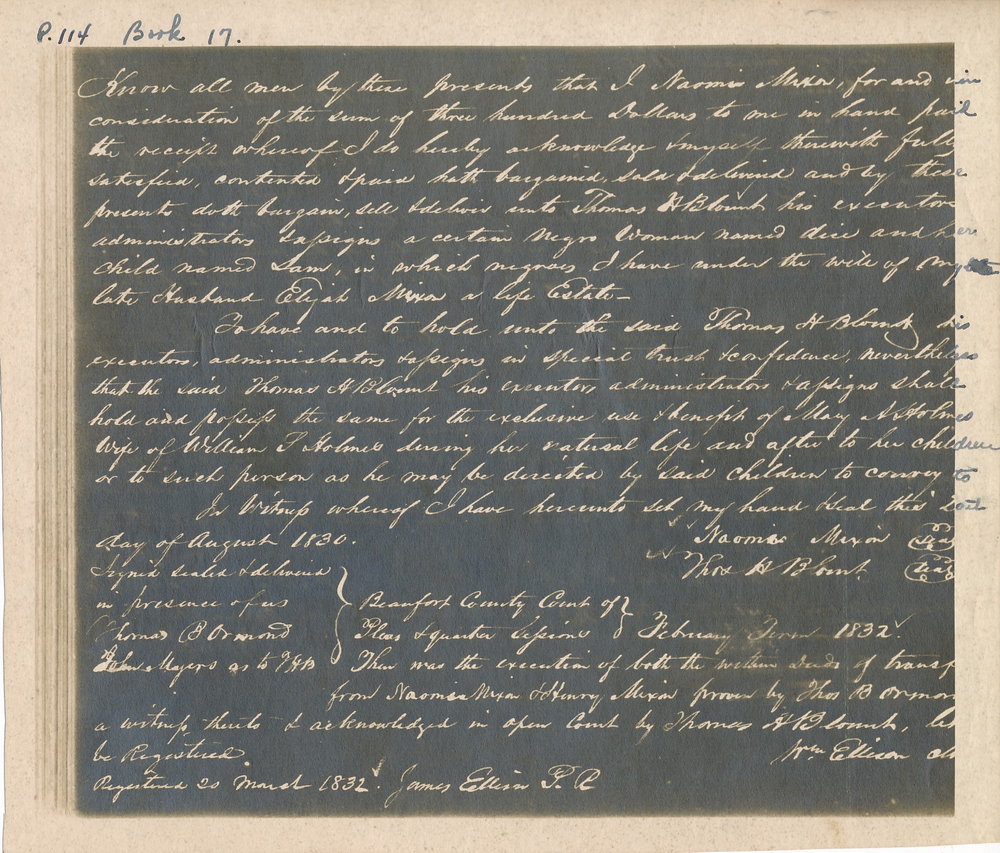 P. 114 Book 17.
Know all men by these presents that I Naomi Mixon, for and in
consideration of the sum of three hundred Dollars to me in hand paid
the receipt whereof I do hereby acknowledge & myself therewith full
satisfied, contented & paid hath bargained, sold & delivered and by these
presents doth bargain, sell & deliver unto Thomas H Blount his executors
administrators & assigns a certain Negro Woman named dice and her
child named Sam, in which negroes I have under the will of my
late Husband Elijah Mixon a life Estate—
To have and to hold unto the said Thomas H Blount his
executors, administrators & assigns in special trust & confidence, nevertheless
that the said Thomas H Blount his executors administrators & assigns shall
hold and possess the same for the exclusive use & benefit of Mary A Holmes
Wife of William T Holmes during her natural life and after to her children
or to such person as he may be directed by said children to convey to
In Witness whereof I have hereunto set my hand & seal this
day of August 1830. Naomi Mixon Seal
Signed sealed & delivered Thos H Blount Seal
in presence of us Beaufort County Court of
Thomas B Ormond Pleas & quarter Sessions February Term 1832.
John Mayers as to THB Then was the execution of both the within Deeds of transf
from Naomi Mixon & Henry Mixon proven by Thos B Ormon
a witness thereto & acknowledged in open Court by Thomas H Blount, let
be Registered. Wm Ellison Clk
Registered 20 March 1832. James Ellison P. R